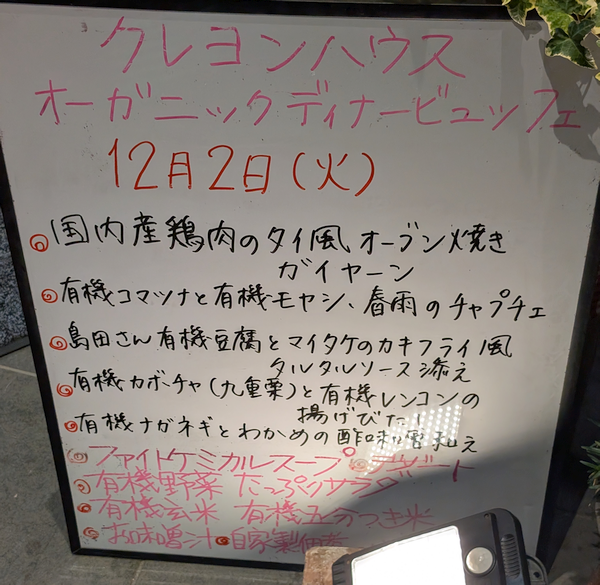 クレヨンハウス
オーガニックディナービュッフェ
12月2日(火)
国内産鶏肉のタイ風オーブン焼き
ガイヤーン
有機コマツナと有機モヤシ、春雨のチャプチェ
島田さん有機豆腐とマイタケのカキフライ風
タルタルソース添え
有機カボチャ(九重栗)と有機レンコンの
揚げびたし
有機ナガネギとわかめの酢味噌和え
ファイトケミカルスープ デザート
有機野菜たっぷりサラダ
有機玄米 有機五分つき米
お味噌汁 自家製